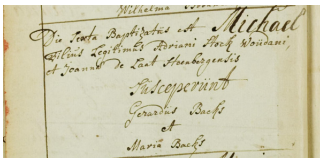 Wilhelma
Die Sexta Baptizatus est Michael
Filius Legitimus Adriani Hock Woudani,
et Joanna de Laet Steenbergensis
Susceperunt
Gerardus Backs
et
Maria Backs